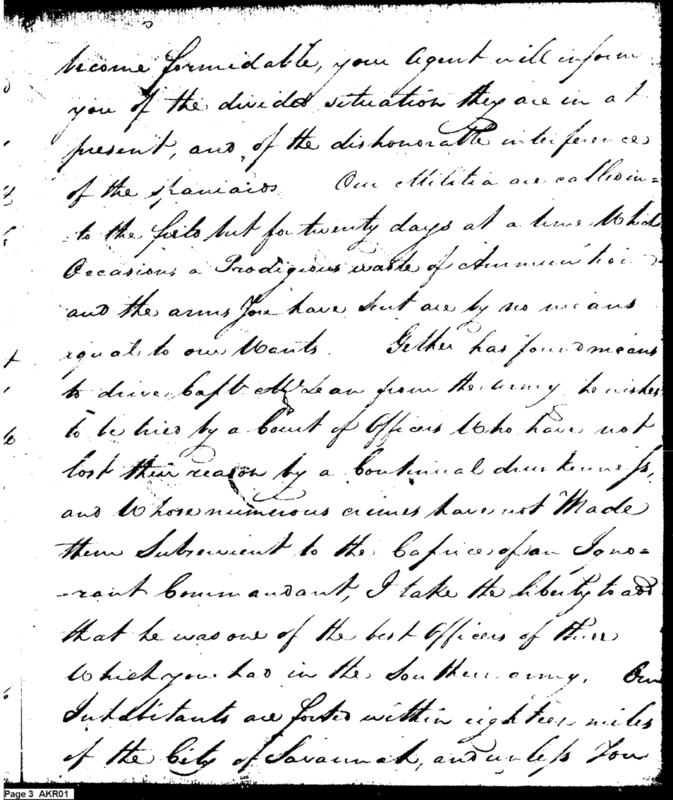 become formidable, your Agent will inform
you of the divided situation they are in at
present, and of the dishonorable interference
of the spaniards. Our Militia are called in=
to the field but for twenty days at a time Which
Occasions a Prodigious waste of Ammunition
and the arms You have sent are by no means
equal to our Wants. Gether has found means
to drive Capt. McLean from the army he wishes
to be tried by a Court of Officers Who have not
lost their reason by a Continual drunkenness,
and Whose numerous crimes have not Made
them Subservient to the Caprices of an Igno=
=rant Commandant, I take the liberty to add
that he was one of the best Officers of
Which you had in the Southern army. Our
Inhabitants are forted within eighteen miles
of the City of Savannah, and unless You
Page 3 AKR01